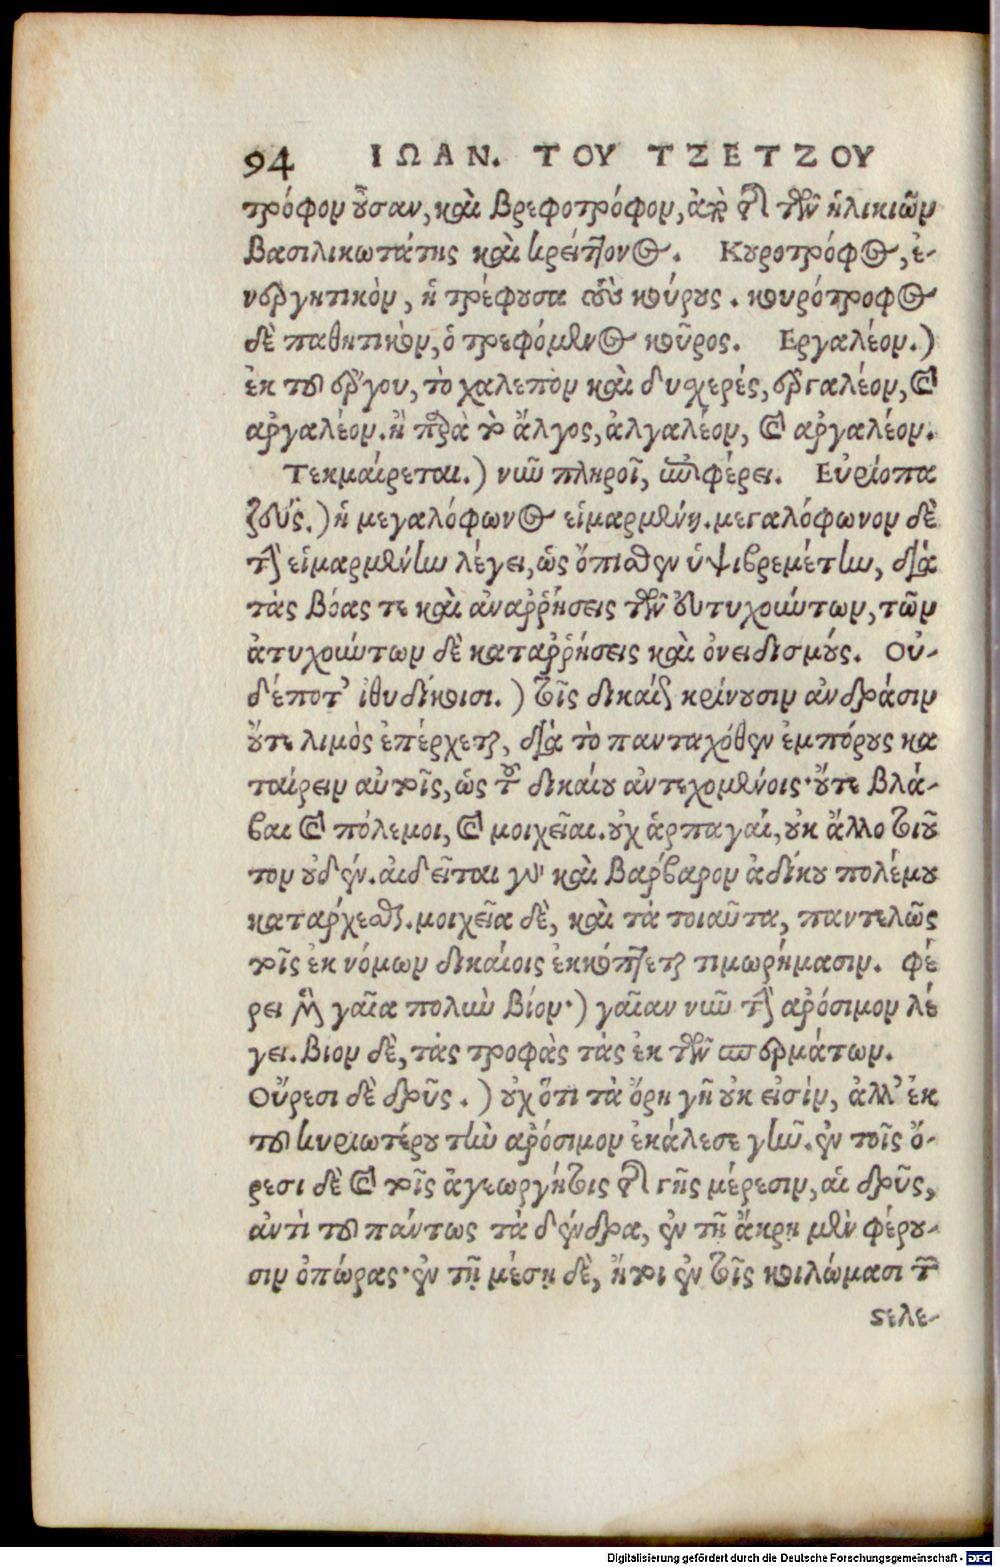 94 ΙΩΑΝ. ΤΟΥ ΤΖΕΤΖΟΥ
τρόφον οὖσαν, καὶ βρεφοτρόφον, ἀπὸ τῆς τῶν ἡλικιῶν
βασιλικωτάτης καὶ κρείττονος. Κουροτρόφος, ἐ-
νεργητικὸν, ἡ τρέφουσα τοὺς κούρους. κουρότροφος
δὲ παθητικὸν, ὁ τρεφόμενος κοῦρος. Εργαλέον.)
ἐκ τοῦ ἔργου, τὸ χαλεπὸν καὶ δυχερές, ἐργαλέον, καὶ
ἀργαλέον. ἢ παρὰ τὸ ἄλγος, ἀλγαλέον, καὶ ἀργαλέον.
Τεκμαίρεται.) νῦν πληροῖ, ἐπιφέρει. Εὐρύοπα
ζεύς.) ἡ μεγαλόφωνος εἱμαρμένη. μεγαλόφωνον δὲ
τὴν εἱμαρμένην λέγει, ὡς ὄπισθεν ὑψιβρεμέτην, διὰ
τὰς βόας τε καὶ ἀναῤῥήσεις τῶν εὐτυχούντων, τῶν
ἀτυχούντων δὲ καταῤῥήσεις καὶ ὀνειδισμούς. Οὐ-
δέποτ' ἰθυδίκοισι.) τοῖς δικαίως κρίνουσιν ἀνδράσιν
οὔτε λιμὸς ἐπέρχεται, διὰ τὸ πανταχόθεν ἐμπόρους κα
ταίρειν αὐτοῖς, ὡς τοῦ δικαίου ἀντεχομένοις· οὔτε βλά-
βαι καὶ πόλεμοι, καὶ μοιχεῖαι. οὐχ ἁρπαγαί, οὐκ ἄλλο τοιοῦ
τον οὐδέν. αἰδεῖται γὰρ καὶ βάρβαρον ἀδίκου πολέμου
κατάρχεσθαι. μοιχεῖα δὲ, καὶ τὰ τοιαῦτα, παντελῶς
τοῖς ἐκ νόμων δικαίοις ἐκκόπτεται τιμωρήμασιν. Φέ
ρει μὲν γαῖα πολὺν βίον·) γαῖαν νῦν τὴν ἀρόσιμον λέ
γει. βίον δὲ, τὰς τροφὰς τὰς ἐκ τῶν σπερμάτων.
Οὔρεσι δὲ δρῦς.) οὐχ ὅτι τὰ ὄρη γῆ οὐκ εἰσὶν, ἀλλ' ἐκ
τοῦ κυριωτέρου τὴν ἀρόσιμον ἐκάλεσε γῆν. ἐν τοῖς ὄ-
ρεσι δὲ καὶ τοῖς ἀγεωργήτοις τῆς γῆς μέρεσιν, αἱ δρῦς,
ἀντὶ τοῦ πάντως τὰ δένδρα, ἐν τῇ ἄκρῃ μὲν φέρου-
σιν ὀπώρας· ἐν τῇ μέσῃ δὲ, ἤτοι ἐν τοῖς κοιλώμασι τῶν
στελε-
Digitalisierung gefördert durch die Deutsche Forschungsgemeinschaft - DFG